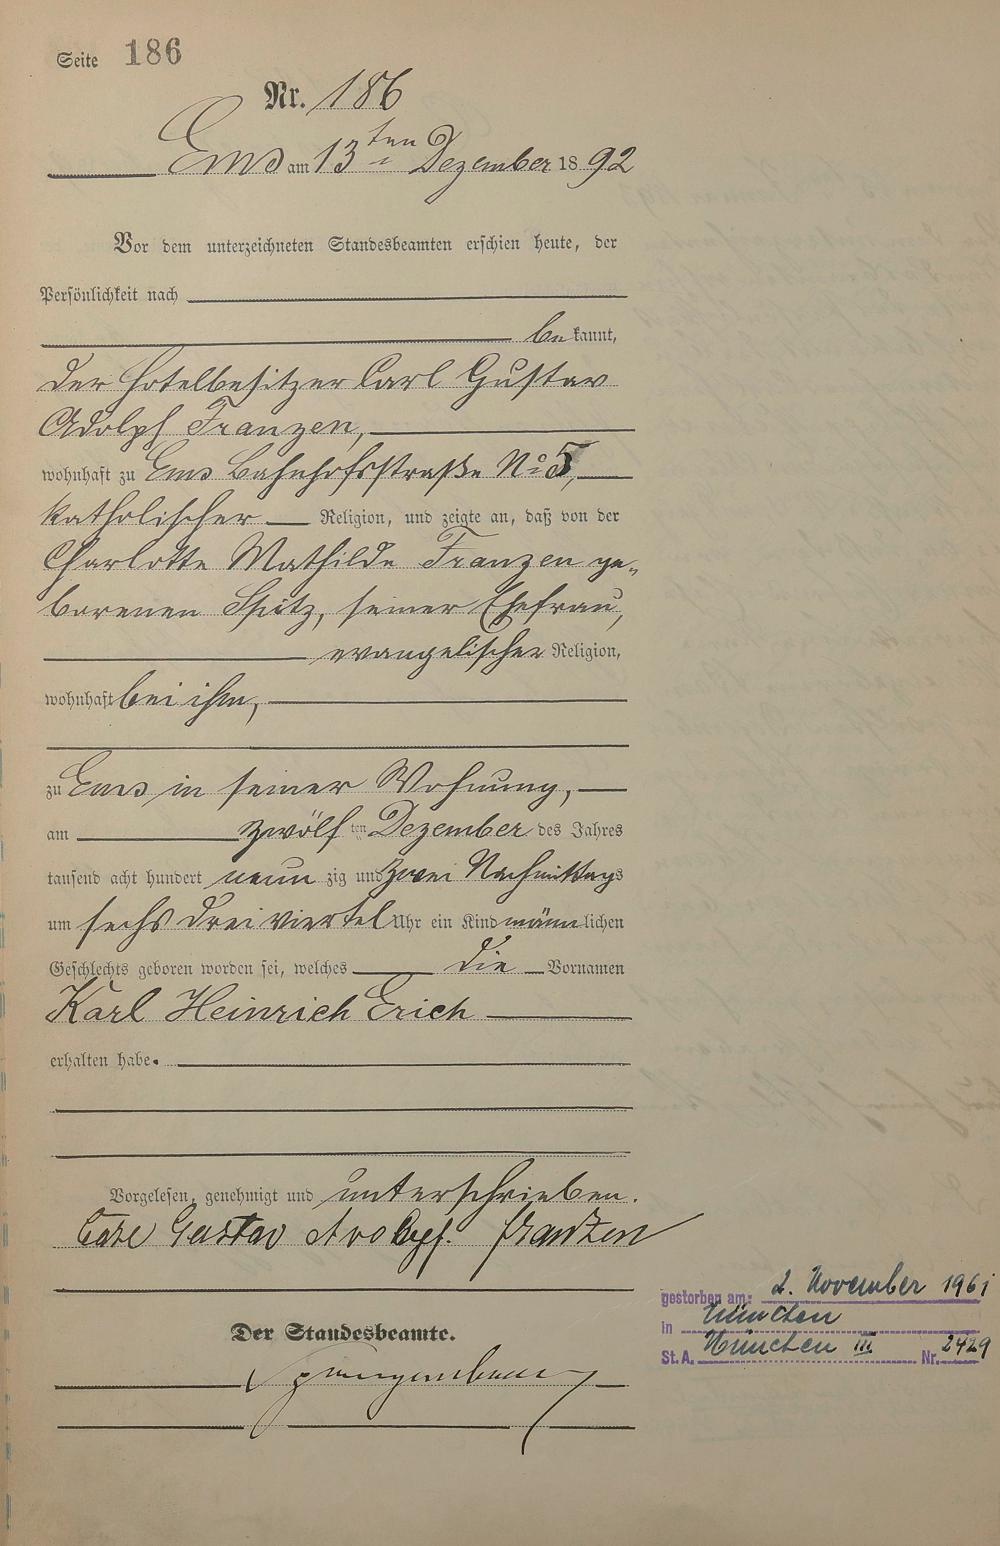 Seite 186
Nr. 186
Ems am 13ten Dezember 1892
Vor dem unterzeichneten Standesbeamten erschien heute, der
Persönlichkeit nach
bekannt,
der Hotelbesitzer Carl Gustav
Adolph Franzen,
wohnhaft zu Ems Bahnhofsstraße No 5,
katholischer Religion, und zeigte an, daß von der
Charlotte Mathilde Franzen ge-
borenen Spitz, seiner Ehefrau,
evangelischer Religion,
wohnhaft bei ihm,
zu Ems in seiner Wohnung,
am zwölften Dezember des Jahres
tausend acht hundert neunzig und zwei Nachmittags
um sechs drei viertel Uhr ein Kind männlichen
Geschlechts geboren worden sei, welches die Vornamen
Karl Heinrich Erich
erhalten habe.
Vorgelesen, genehmigt und unterschrieben.
Carl Gustav Adolph Franzen
Der Standesbeamte.
gestorben am: 2. November 1961
in München
St.A. München III Nr. 2429